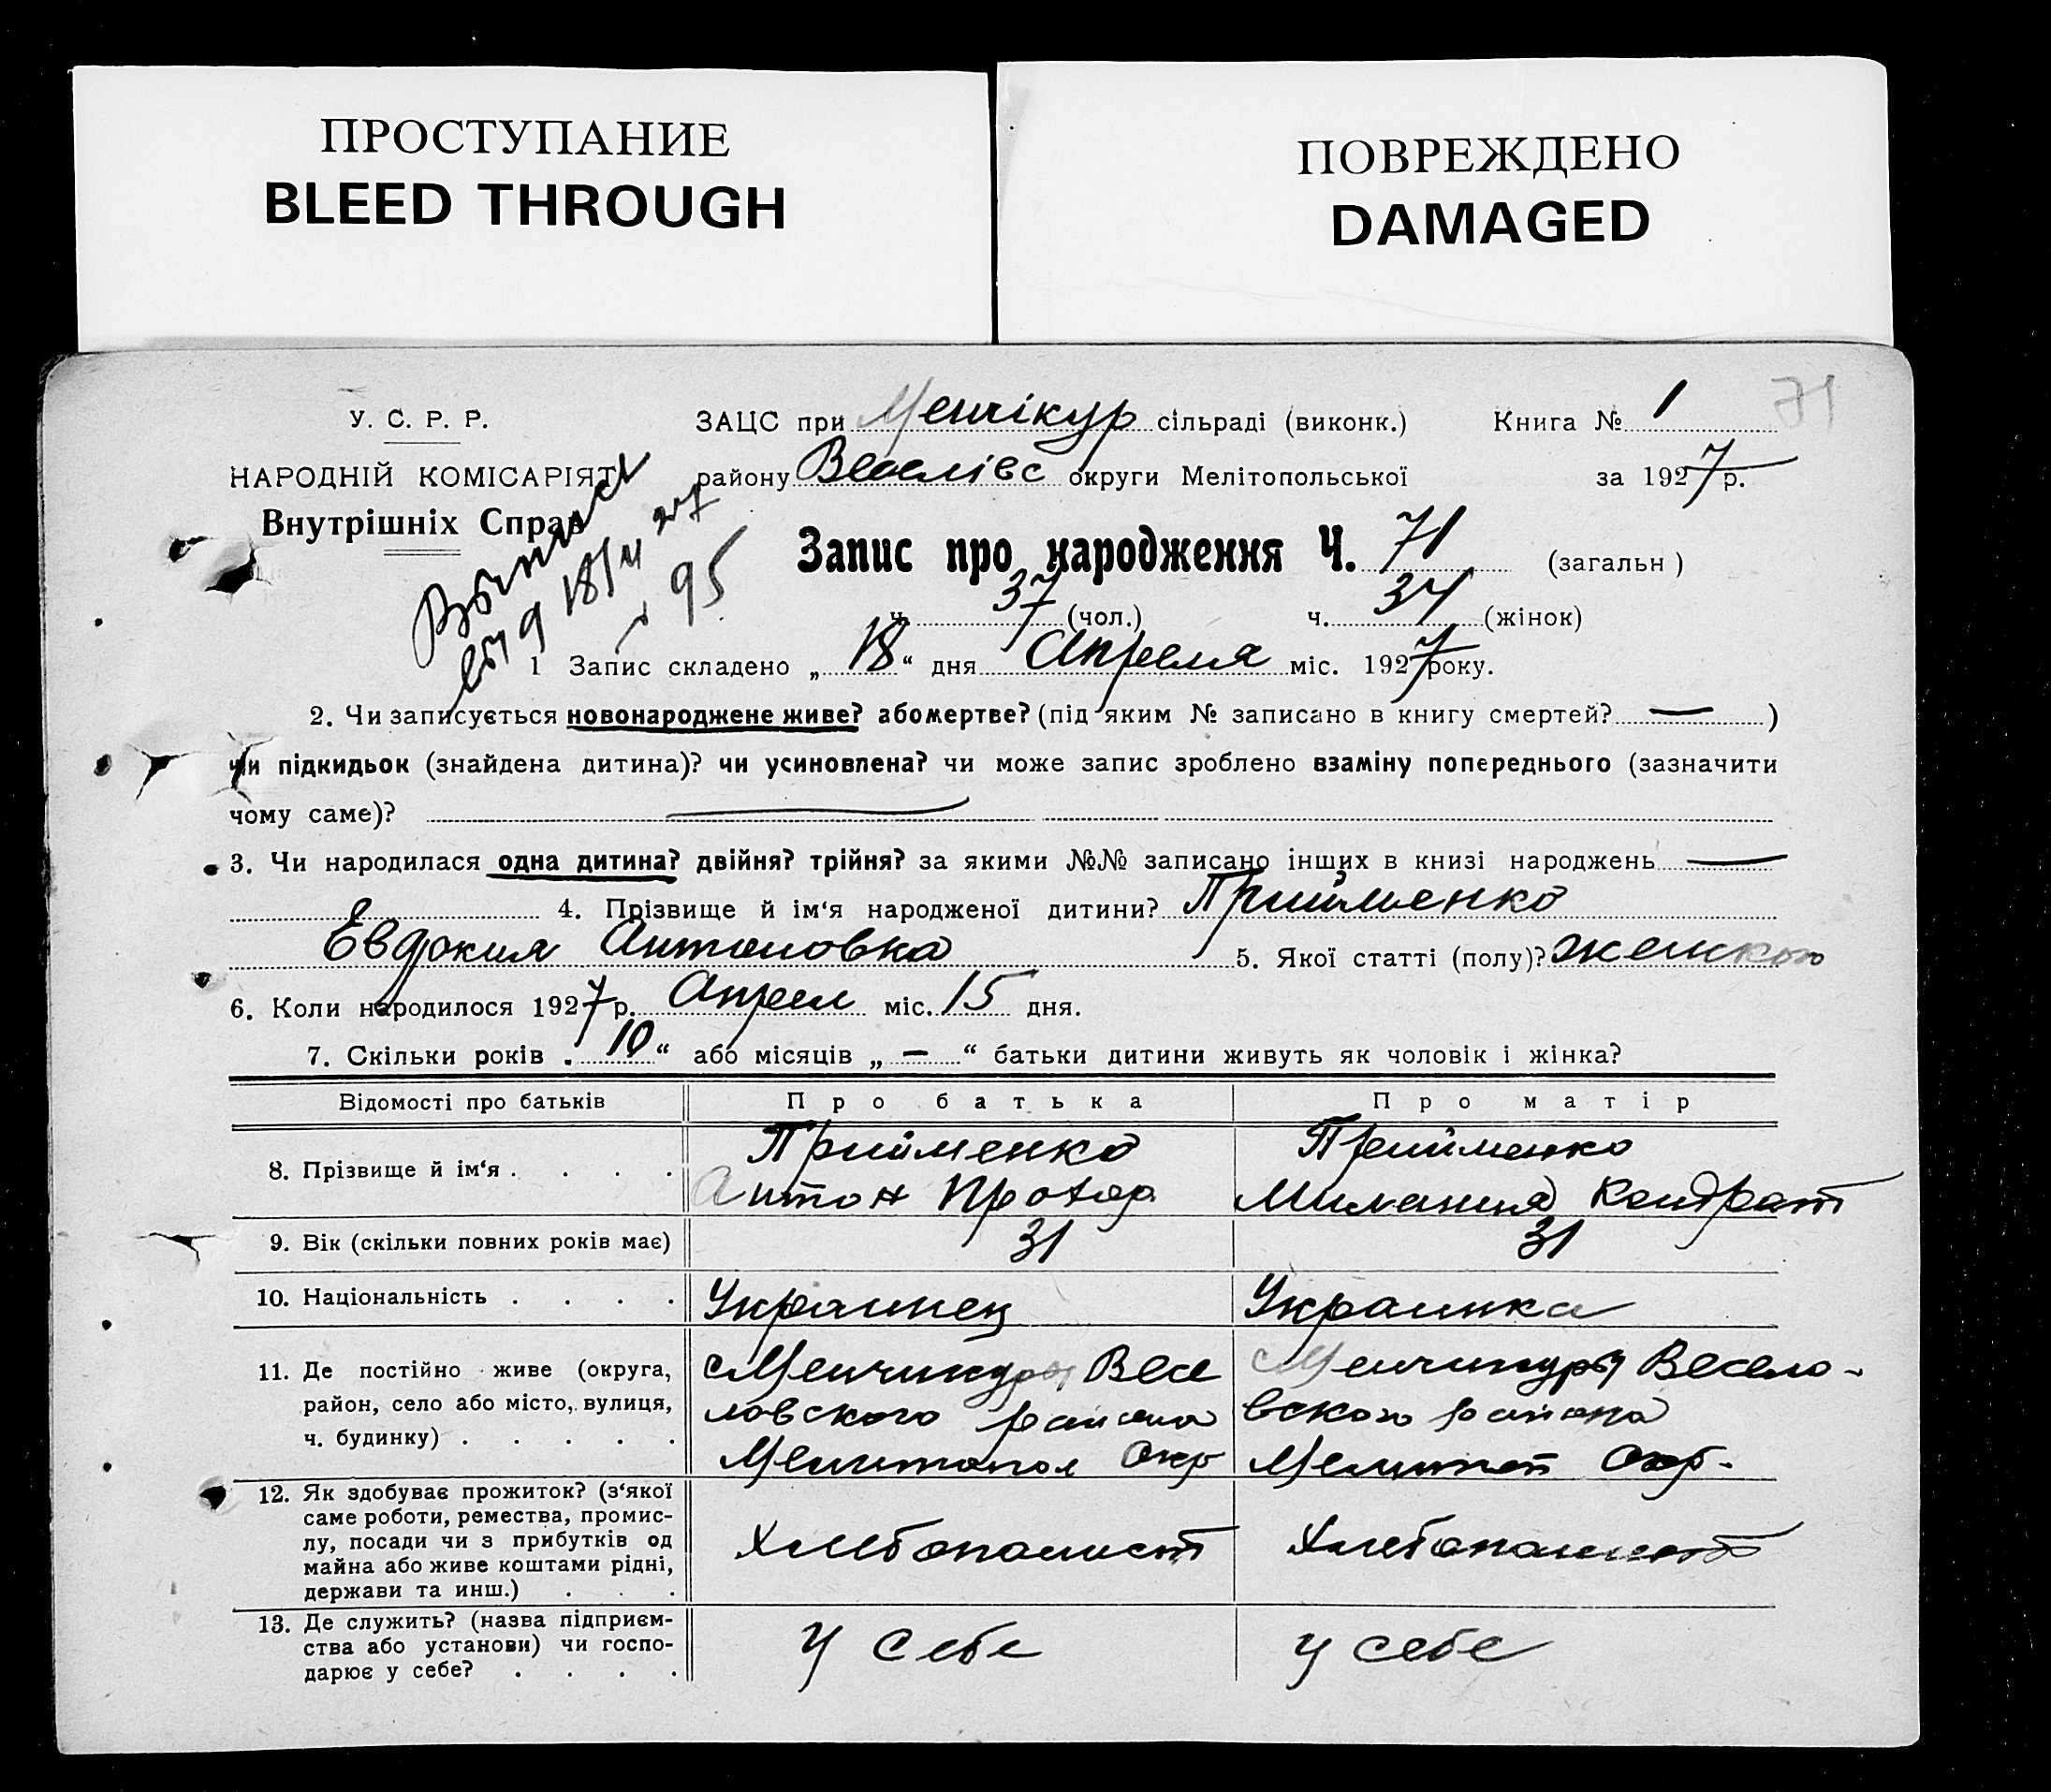 ПРОСТУПАНИЕ
BLEED THROUGH
ПОВРЕЖДЕНО
DAMAGED
71
У. С. Р. Р.
НАРОДНІЙ КОМІСАРІЯТ
Внутрішніх Справ
ЗАЦС при Менчікур сільраді (виконк.) Книга № 1
району Веселівс округи Мелітопольської за 1927 р.
Запис про народження Ч. 71 (загальн)
ч. 37 (чол.) ч. 34 (жінок)
18/4 27
95
1 Запис складено „ 18 “ дня Апреля міс. 1927 року.
2. Чи записується новонароджене живе? або мертве? (під яким № записано в книгу смертей? — )
чи підкидьок (знайдена дитина)? чи усиновлена? чи може запис зроблено взаміну попереднього (зазначити
чому саме)? —
3. Чи народилася одна дитина? двійня? трійня? за якими №№ записано інших в книзі народжень —
4. Прізвище й ім‘я народженої дитини? Прийменко
Евдокия Антоновка 5. Якої статті (полу)? женского
6. Коли народилося 1927 р. Апрел міс. 15 дня.
7. Скільки років „ 10 “ або місяців „ — “ батьки дитини живуть як чоловік і жінка?
Відомості про батьків Про батька Про матір
8. Прізвище й ім‘я . . . . Прийменко Прийменко
Антон Милания Кондрат
9. Вік (скільки повних років має) 31 31
10. Національність . . . . Украинец Украинка
11. Де постійно живе (округа,
район, село або місто, вулиця,
ч. будинку) . . . . .
с Менчикуры Весе
ловского района
Мелитопол Окр
с Менчикуры Весело-
вского района
Мелитоп Окр.
12. Як здобуває прожиток? (з‘якої
саме роботи, ремества, промис-
лу, посади чи з прибутків од
майна або живе коштами рідні,
держави та инш.) . . .
Хлебопашест Хлебопашест
13. Де служить? (назва підприєм-
ства або установи) чи госпо-
дарює у себе? . . . .
у себе у себе